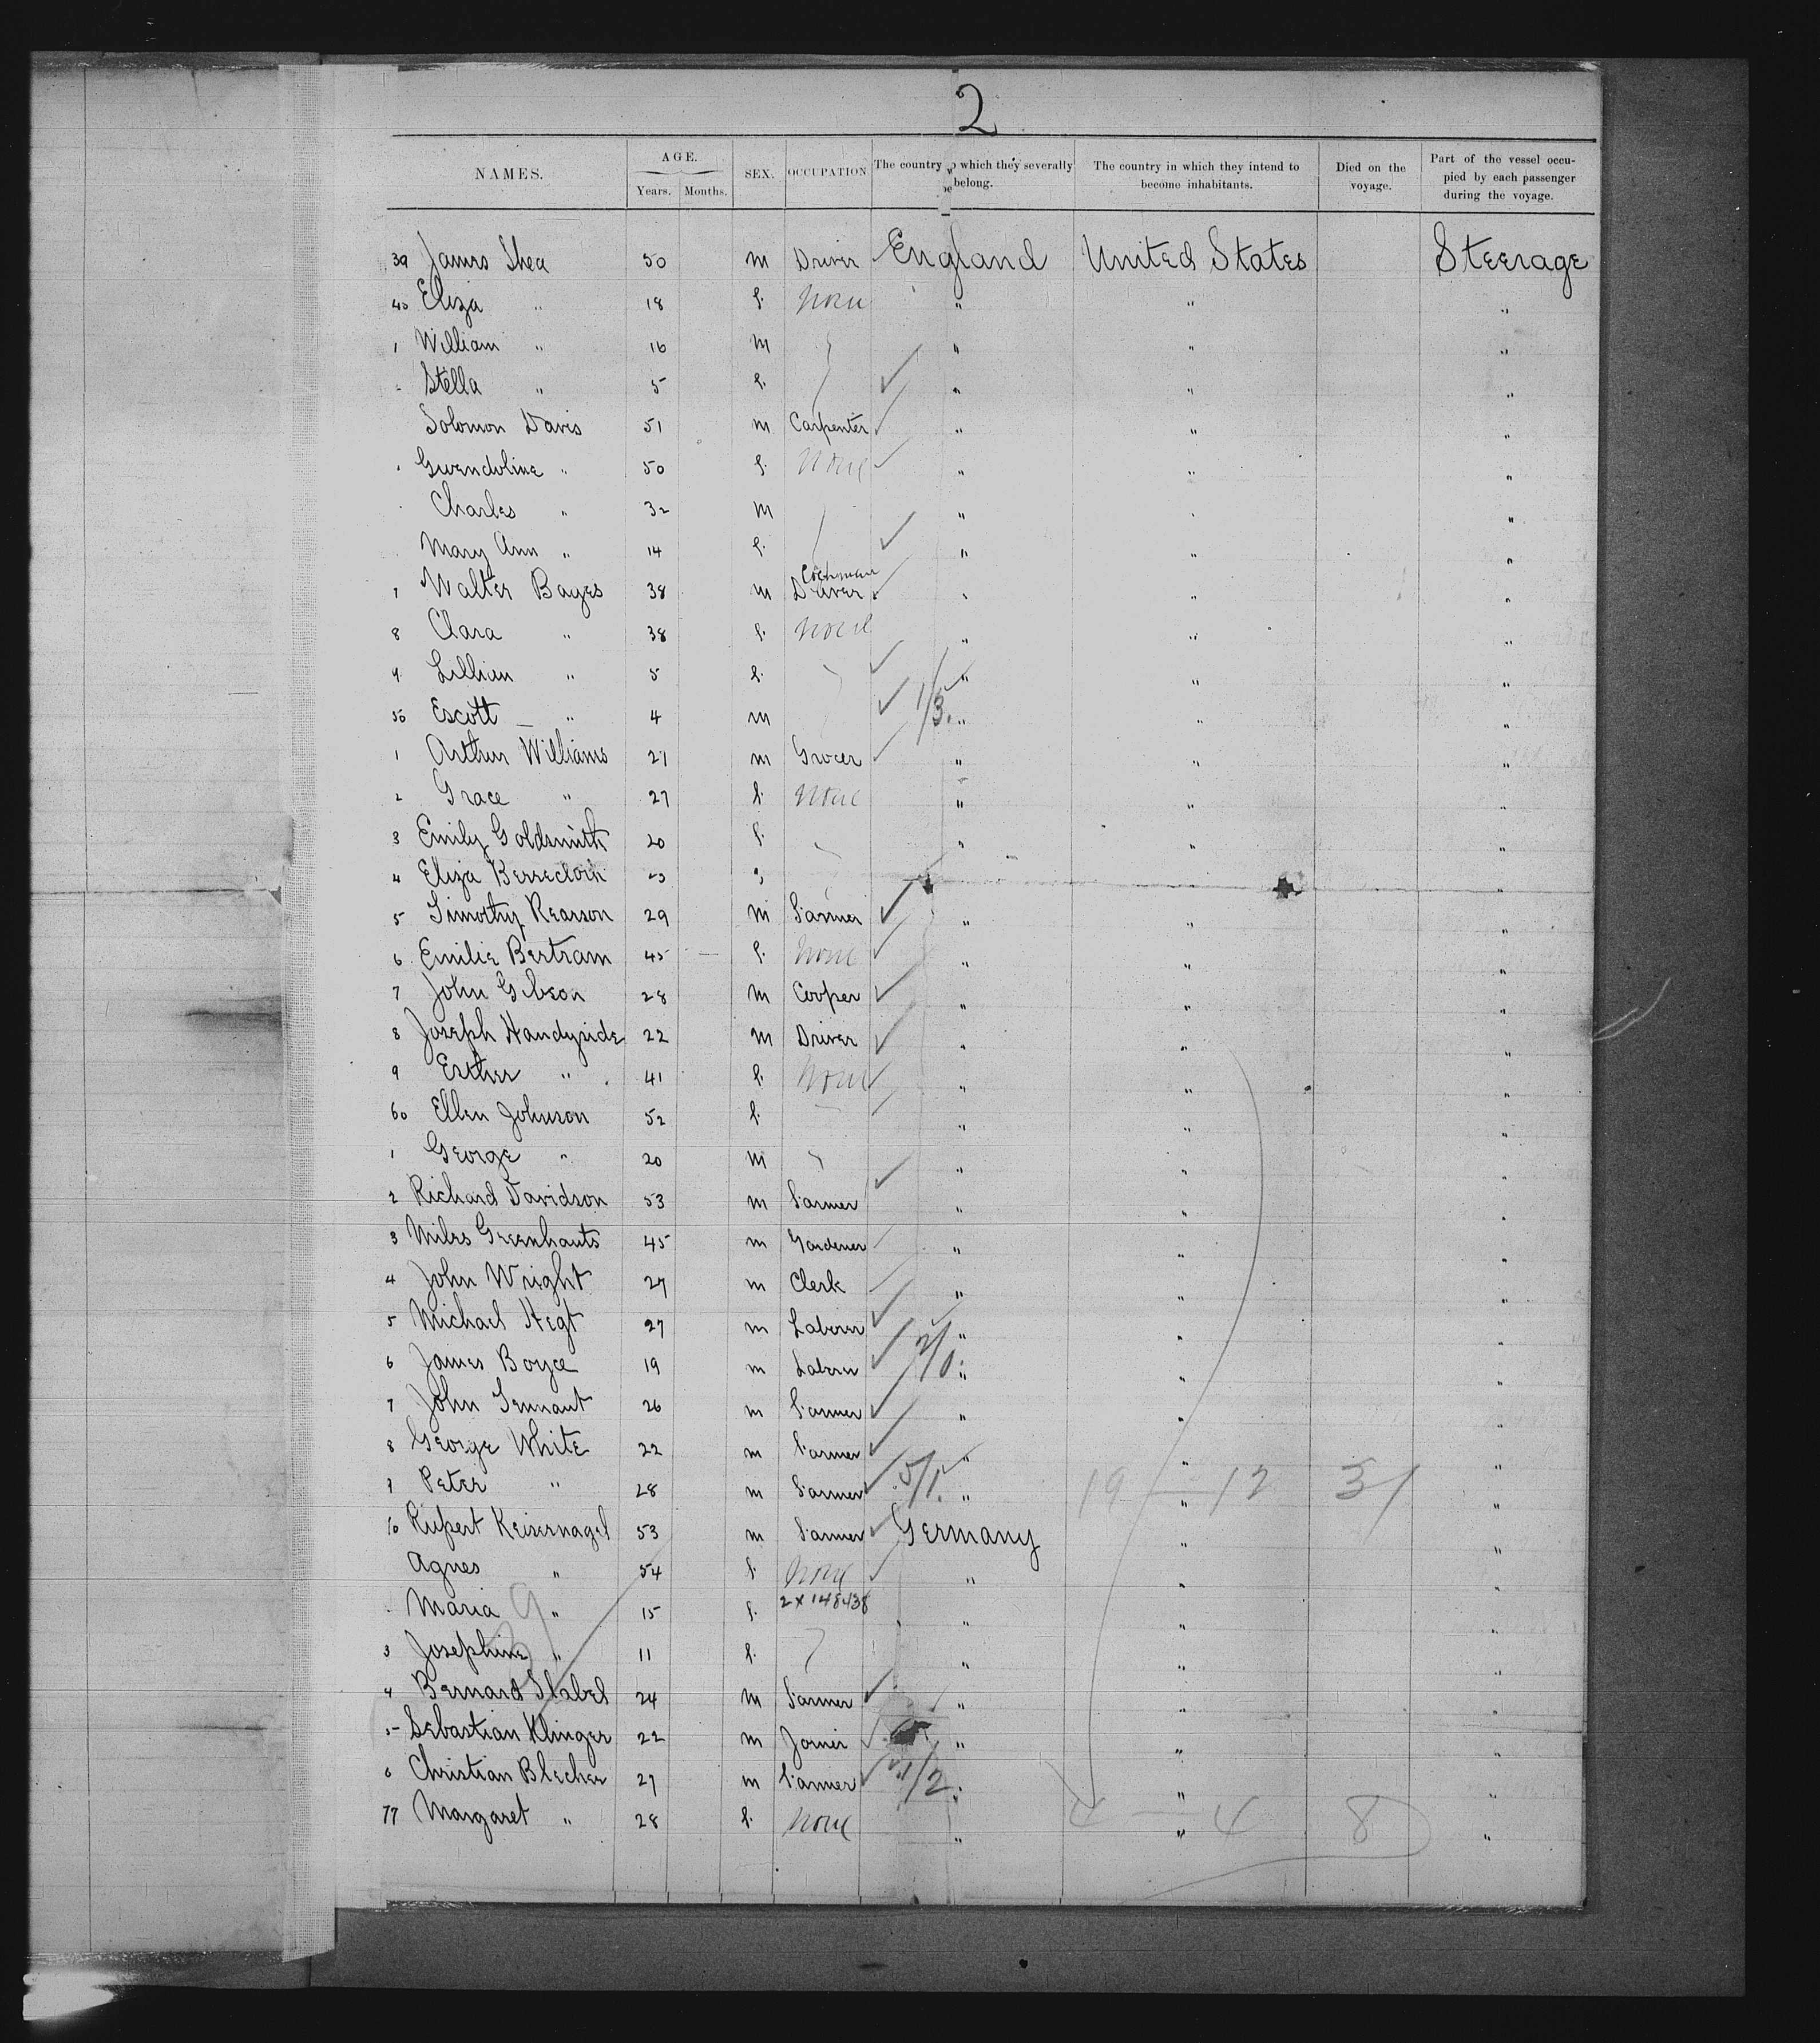 2
NAMES. AGE. Years. Months. SEX. OCCUPATION The country to which they severally belong. The country in which they intend to become inhabitants. Died on the voyage. Part of the vessel occupied by each passenger during the voyage.
39 James Shea 50 m Driver England United States Steerage
40 Eliza " 18 f. None " " "
1 William " 16 m " " "
Stella " 5 f. " " "
Solomon Davis 51 m Carpenter " " "
Gwendoline " 50 f. None " " "
Charles " 32 m " "
Mary Ann " 14 f. " " "
Cochman
7 Walter Bayes 38 m Driver " " "
8 Clara " 38 f. None " " "
9 Lillian " 5 f. " " "
50 Escott " 4 m 1/3. " " "
1 Arthur Williams 27 m Grocer " " "
2 Grace " 27 f. None " " "
3 Emily Goldsmith 20 f. " " "
4 Eliza "
5 Timothy Rearson 29 m Farmer " " "
6 Emilie Bertram 45 f. None " " "
7 John Gibson 28 m Cooper " " "
8 Joseph Handyside 22 m Driver " " "
9 Esther " 41 f. None " " "
60 Ellen Johnson 52 f. " " "
1 George " 20 m " " "
2 Richard Davidson 53 m Farmer " " "
3 Miles 45 m Gardener " " "
4 John Wright 27 m Clerk " " "
5 Michael Hegt 27 m Laborer " " "
6 James Boyce 19 m Laborer 2/0 " " "
7 John Tennant 26 m Farmer " " "
8 George White 22 m Farmer " " "
9 Peter " 28 m Farmer 5/1. " 19 - 12 " 31 "
70 Rupert Keisernagel 53 m Farmer Germany " "
Agnes " 54 f. None " " "
Maria " 15 f. 2x148438 " " "
3 Josephine " 11 f. " " "
4 Bernard 24 m Farmer " " "
5 Sebastian Klinger 22 m Joiner " " "
6 Christian Blecher 27 m Farmer 1/2 " " "
77 Margaret " 28 f. None " 4 - 4 " 8 "